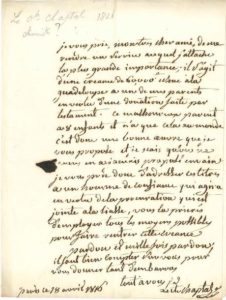 Le Cte Chaptal
chimiste?
je vous prie, mon très cher ami, de me
rendre un service auquel j'attache
la plus grande importance; il s'agit
d'une créance de
guadeloupe a un de mes parents
en vertu d'une donation faite par
testament. Ce malheureux parent
a 8 enfants et n'a que cela au monde
c'est donc une bonne œuvre que je
vous propose et je sais qu'on ne
vous en a jamais proposé en vain.
je vous prie donc d'adresser ces titres
a un homme de confiance qui agira
en vertu de la procuration qui est
jointe a la liasse, vous la prierez
d'employer tous les moyens possibles
pour faire rentrer cette créance
pardon et mille fois pardon;
il faut bien compter sur vous pour
vous donner tant d'embarras
tout a vous
Le Cte Chaptal
paris ce 18 avril 1816